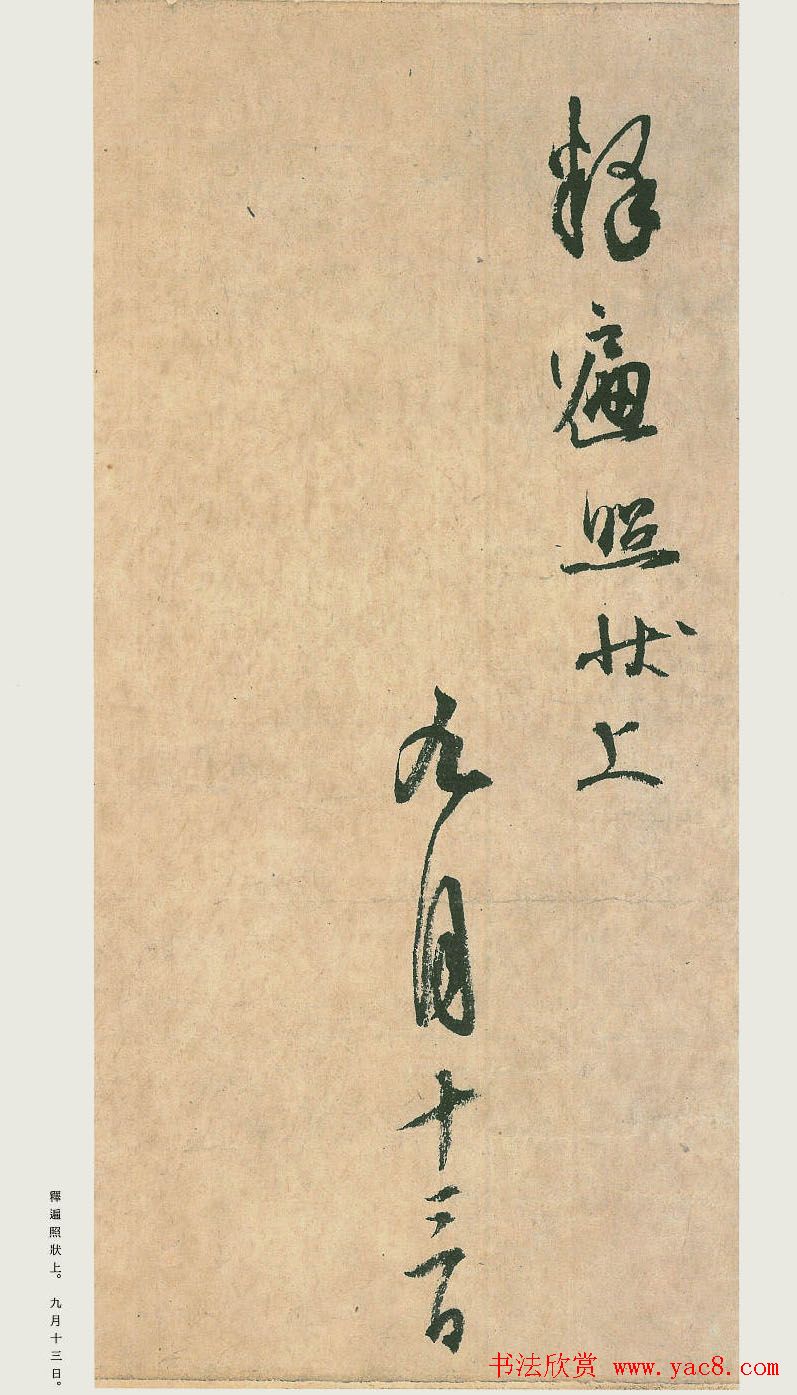 釋遍照狀上
九月十三日
釋遍照狀上。九月十三日。
书法欣赏 www.yac8.com